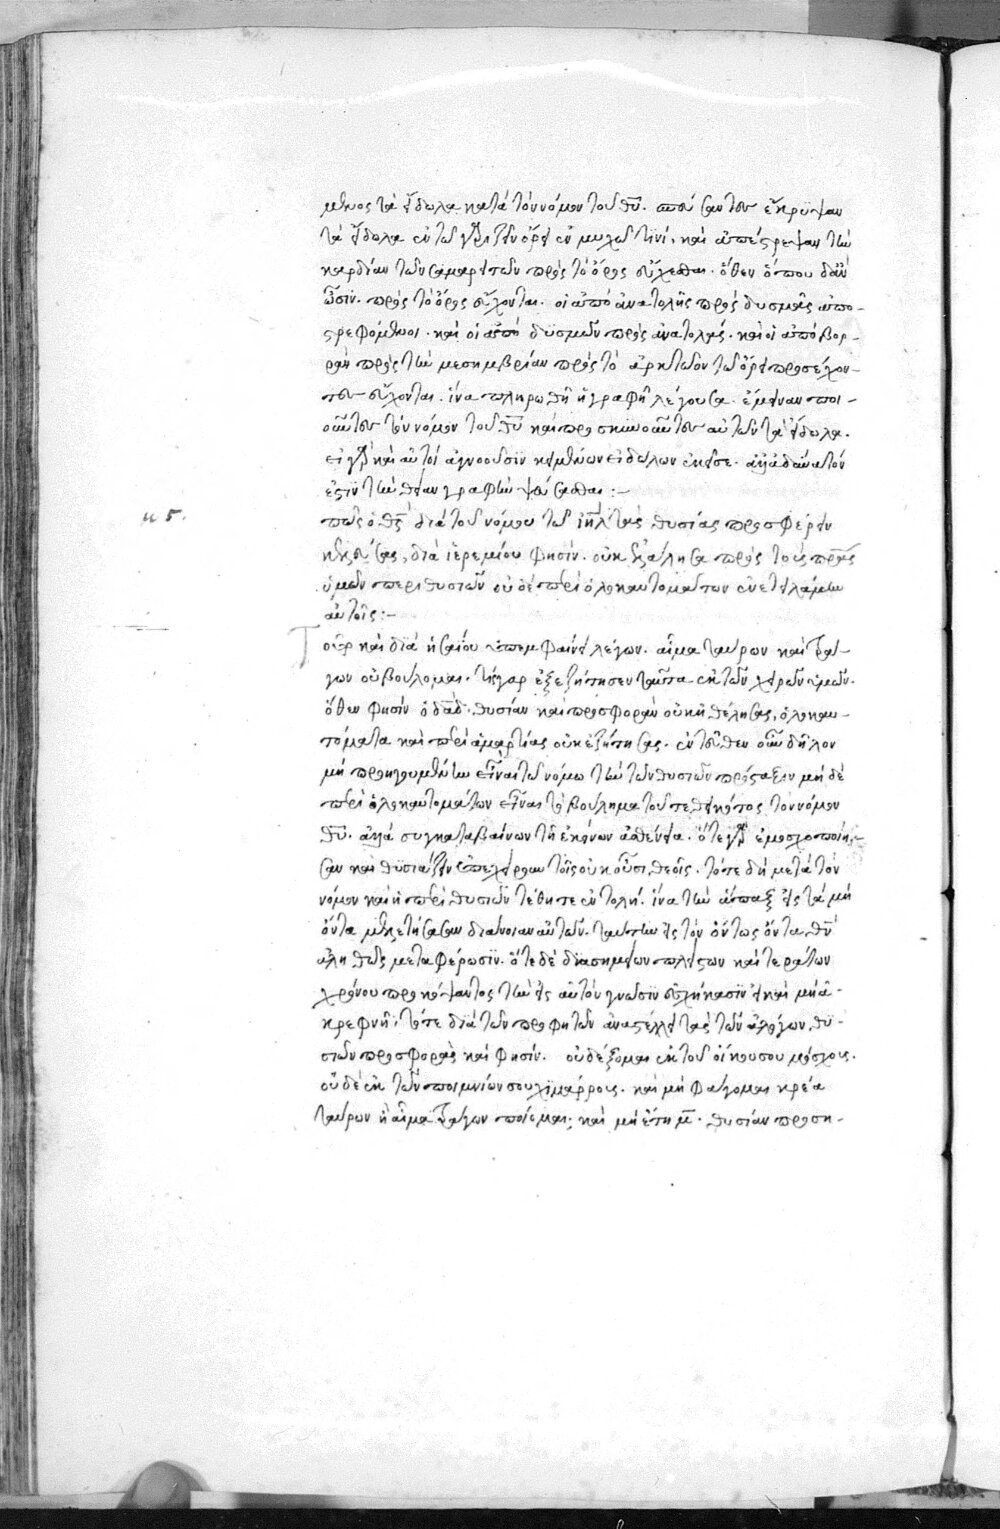 μενος τὰ εἴδωλα κατὰ τὸν νόμον τοῦ θῡ. σπεύσαντες ἔκρυψαν
τὰ εἴδωλα ἐν τῶ γαριζεὶν ὄρει ἐν μυχῶ τινί. καὶ ἀπέστρεψαν τὴν
καρδίαν τῶν σαμαρειτῶν πρὸς τὸ ὄρος εὔχεσθαι. ὅθεν ὅπου δἂν
ὦσϊν. πρὸς τὸ ὄρος εὔχονται. οἱ ἀπὸ ἀνατολῆς πρὸς δυσμὰς ἀπο-
στρεφόμενοι. καὶ οἱ ἀπὸ δυσμῶν πρὸς ἀνατολάς. καὶ οἱ ἀπὸ βορ-
ρᾶν πρὸς τὴν μεσημβρίαν πρὸς τὸ ἀρκτῶον τῶ ὄρει προσέχον-
τες εὔχονται. ἵνα πληρωθῆ ἡ γραφὴ λέγουσα. ἔμειναν ποι-
οῦντες τὸν νόμον τοῦ θῡ καὶ προσκυνοῦντες αὐτῶν τὰ εἴδωλα.
εἰ γὰρ καὶ αὐτοὶ ἀγνοοῦσϊν κειμένων εἰδώλων ἐκεῖσε. ἀλλ' ἀδύνατόν
ἐστϊν τὴν θείαν γραφὴν ψεύσασθαι :-
μ5.
πῶς ὁ θς̄ διὰ τοῦ νόμου τῶ ιηλ̄ τὰς θυσίας προσφέρειν
κελεύσας, διὰ ἱερεμίου φησίν. οὐκ ἐλάλησα πρὸς τοὺς πρ̄ας
ὑμῶν περι θυσιῶν οὐδὲ περὶ ὁλοκαυτομάτων ἐνετειλάμην
αὐτοῖς :-
Τοῦτο καὶ διὰ ἡσαΐου ἐπεμφαίνει λέγων. αἷμα ταύρων καὶ τρά-
γων οὐ βούλομαι. τίς γὰρ ἐξεζήτησεν ταῦτα ἐκ τῶν χειρῶν ὑμῶν.
ὅθεν φησὶν ὁ δᾱδ. θυσίαν καὶ προσφορὰν οὐκ ἠθέλησας, ὁλοκαυ-
τόματα καὶ περὶ ἁμαρτίας οὐκ ἐζήτησας. ἐντεῦθεν οὖν δῆλον
μὴ προηγουμένην εἶναι τῶ νόμω τὴν τῶν θυσιῶν πρόσταξιν μὴ δὲ
περὶ ὁλοκαυτομάτων εἶναι τὸ βούλημα τοῦ τεθεικότος τὸν νόμον
θῡ. ἀλλὰ συγκαταβαίνων τῆ ἐκείνων ἀσθενεία. ὅτε γὰρ ἐμοσχοποίη-
σαν καὶ θϋσιάζειν ἐπεχείρουν τοῖς οὐκ οὖσι θεοῖς. τότε δὴ μετὰ τὸν
νόμον καὶ ἡ περὶ θυσιῶν τέθητε ἐντολή. ἵνα τὴν ἅπαξ εἰς τὰ μὴ
ὄντα μελετήσασαν διάνοιαν αὐτῶν. ταύτην εἰς τὸν ὄντως ὄντα θν̄
ἀληθῶς μεταφέρωσϊν. ὅτε δὲ διὰ σημείων πλείστων καὶ τεράτων
χρόνου προκόψαντος τὴν εἰς αὐτὸν γνῶσϊν εἰλήφασϊν εἰ καὶ μὴ ἀ-
κρεφνῆ. τότε διὰ τῶν προφητῶν ἀναστέλλει τὰς τῶν ἀλόγων θυ-
σιῶν προσφορὰς καὶ φησίν. οὐ δέξομαι ἐκ τοῦ οἴκου σου μόσχους.
οὐ δὲ ἐκ τῶν ποιμνίων σου χϊμάρρους. καὶ μὴ φάγομαι κρέα
ταύρων ἢ αἷμα τράγων ποίεμαι; καὶ μὴ ἔτη μ̄. θυσίαν προση-